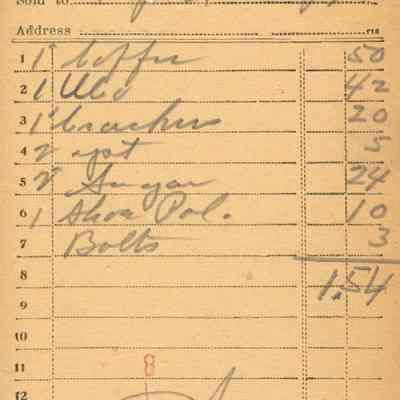 Sold to
Address
1 1 Coffee 50
2 1 42
3 1 Crackers 20
4 2 yst 5
5 2 Sugar 24
6 1 Shoe Pol. 10
7 Bolts 3
8 1.54
9
10
11 8
12